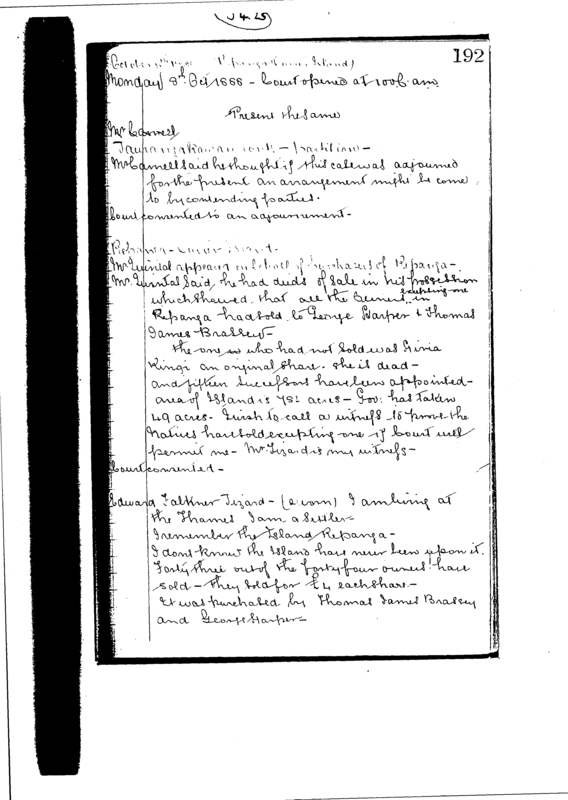 192
Monday 8th Oct 1888 - Court opened at 10 am
Present the same
Mr Carnell
- partition -
Mr Carnell said he thought if this case was adjourned
for the present an arrangement might be come
to by contending parties.
Court consented to an adjournment -
Repanga - Cuvier Island -
Mr Quintal appeared on behalf of purchasers of Repanga -
Mr Quintal said, he had deeds of sale in his possession
which shewed that all the owners in
excepting one
Repanga had sold to George Harper & Thomas
James Brassey -
the one who had not sold was
Kingi an original share. She is dead -
and fifteen successors have been appointed -
area of Island is 481 acres - Gov: has taken
49 acres - I wish to call a witness to prove the
Natives have sold excepting one if Court will
permit me - Mr Tizard is my witness -
Court consented -
Edward Falkner Tizard - (sworn) I am living at
the Thames I am a Settler -
I remember the Island Repanga -
I dont know the Island have never been upon it.
Forty three out of the forty four owners have
sold - they sold for £4 each share -
It was purchased by Thomas James Brassey
and George Harper -